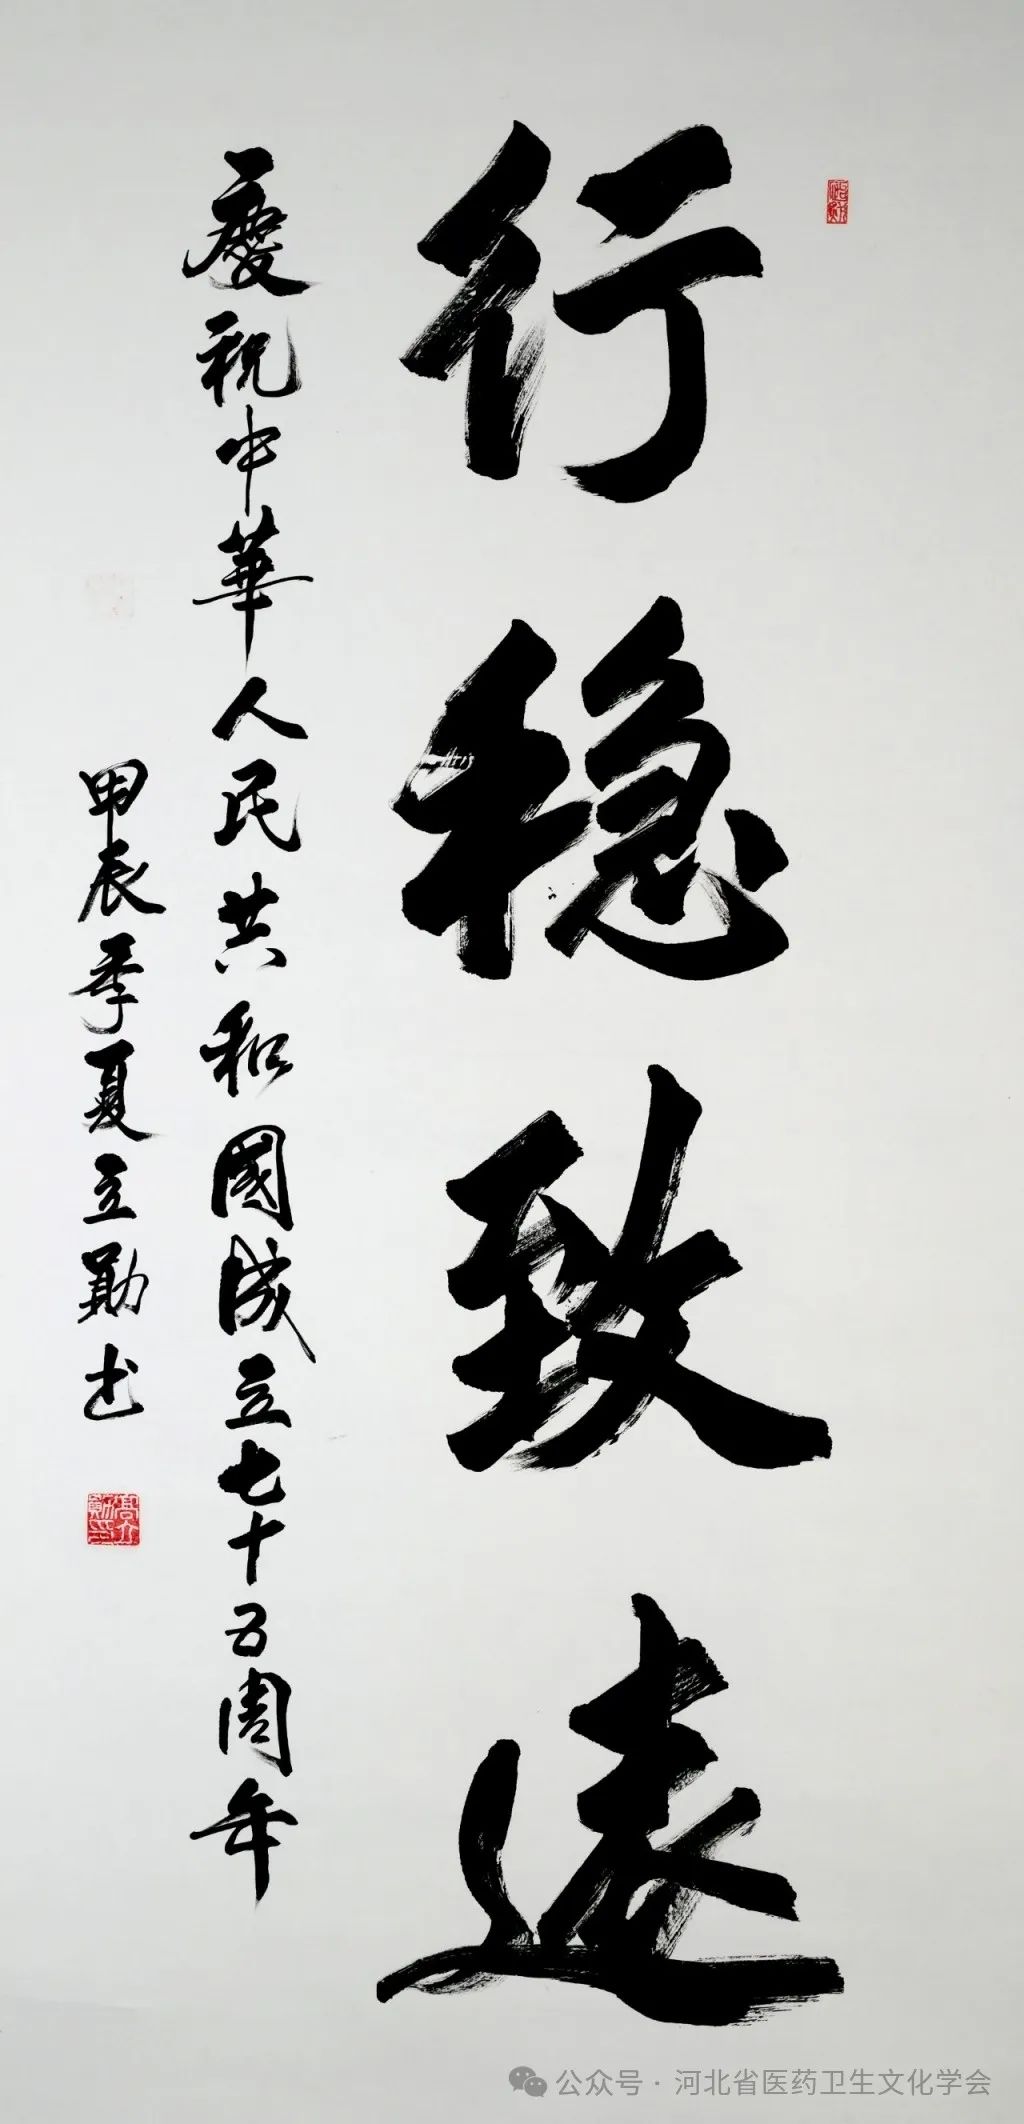 行稳致遠
慶祝中華人民共和國成立七十五周年
甲辰季夏立勤书
公众号·河北省医药卫生文化学会